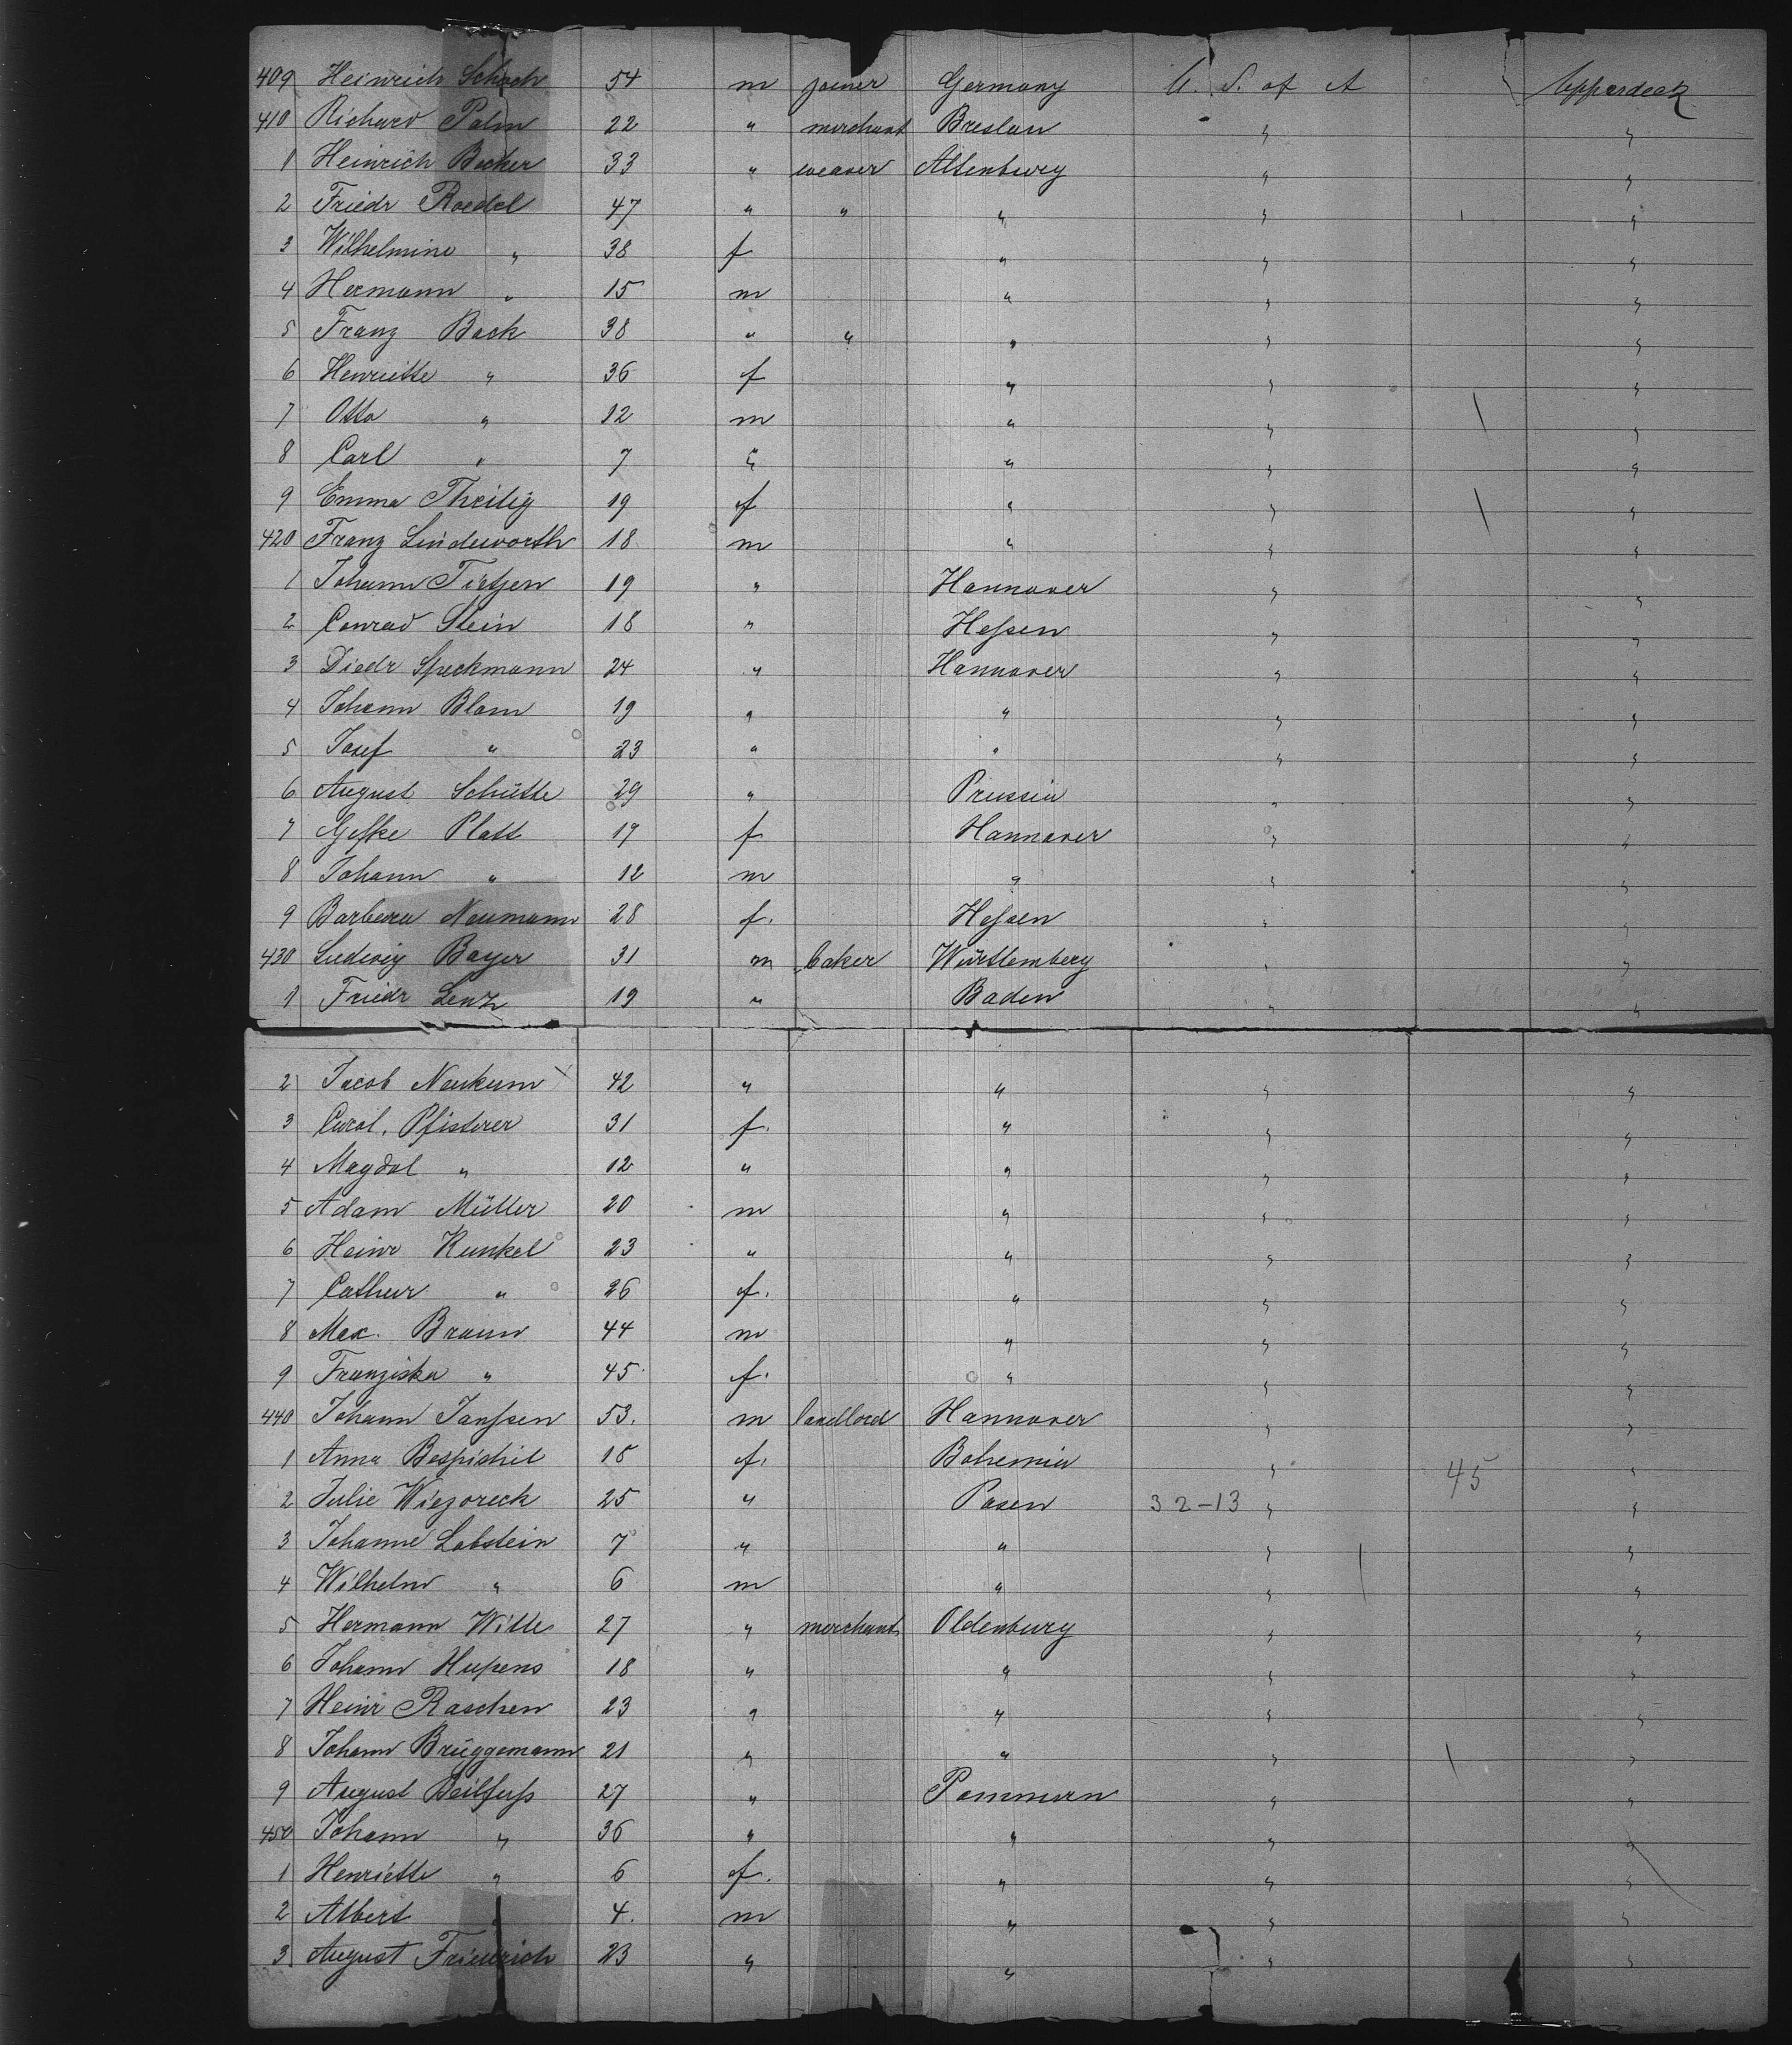 409 Heinrich Schoch 54 m joiner Germany U. S. of A Upperdeck
410 Richard Palm 22 " merchant Breslau " "
1 Heinrich Becker 33 " weaver Altenburg " "
2 Friedr Roedel 47 " " " " "
3 Wilhelmine " 38 f " " "
4 Hermann " 15 m " " "
5 Franz Bock 38 " " " " "
6 Henriette " 36 f " " "
7 Otto " 12 m " " "
8 Carl " 7 " " " "
9 Emma Theilig 19 f " " "
420 Franz Lindeworth 18 m " " "
1 Johann Tietjen 19 " Hannover " "
2 Conrad Stein 18 " Hessen " "
3 Diedr Speckmann 24 " Hannover " "
4 Johann Blom 19 " " " "
5 Josef " 23 " " " "
6 August Schütte 29 " Prussia " "
7 Geske Platt 19 f Hannover " "
8 Johann " 12 m " " "
9 Barbera Neumann 28 f. Hessen " "
430 Ludwig Bayer 31 m baker Württemberg " "
1 Friedr Lenz 19 " Baden " "
2 Jacob Neukum 42 " " " "
3 Carol. Pfisterer 31 f. " " "
4 Magdal " 12 " " " "
5 Adam Müller 20 m " " "
6 Heinr Kunkel 23 " " " "
7 Cathar " 26 f. " " "
8 Max. Braun 44 m " " "
9 Franziska " 45 f. " " "
440 Johann Janssen 53. m landlord Hannover " "
1 Anna Bespischil 18 f. Bohemia " 45 "
2 Julie Wiezoreck 25 " Posen 32-13 " "
3 Johanne Lobstein 7 " " " "
4 Wilhelm " 6 m " " "
5 Hermann Witte 27 " merchant Oldenburg " "
6 Johann Hupens 18 " " " "
7 Heinr Raschen 23 " " " "
8 Johann Brüggemann 21 " " " "
9 August Beilfuss 27 " Pommern " "
450 Johann " 36 " " " "
1 Henriette " 6 f. " " "
2 Albert " 4. m " " "
3 August Friedrich 23 " " " "